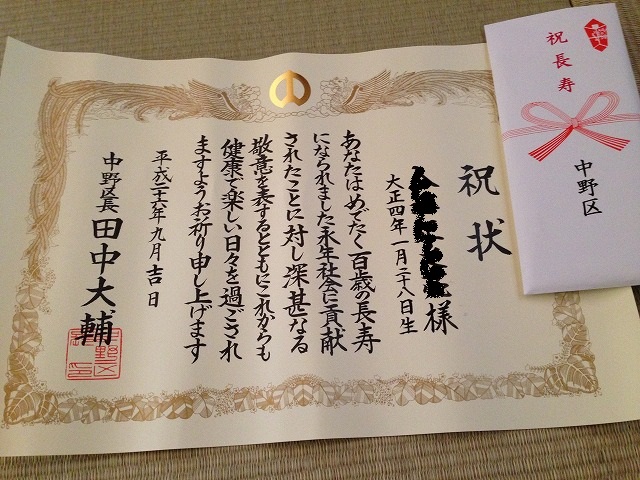 祝状
様
大正四年一月二十八日生
あなたはめでたく百歳の長寿
になられました永年社会に貢献
されたことに対し深甚なる
敬意を表するとともにこれからも
健康で楽しい日々を過ごされ
ますようお祈り申し上げます
平成二十六年九月吉日
中野区長 田中大輔
祝長寿
中野区